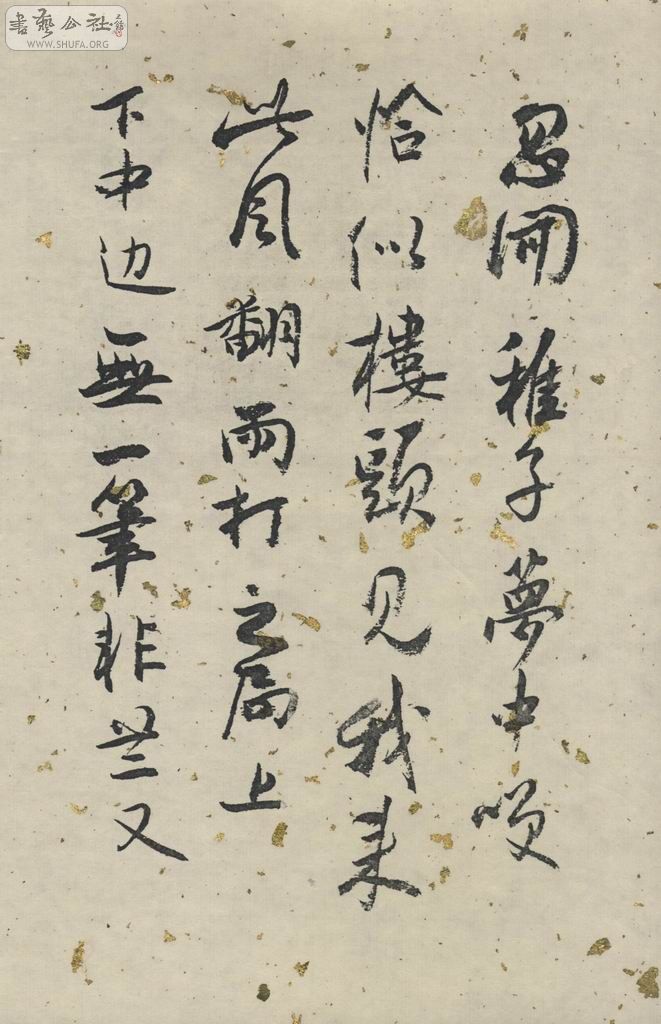 忽聞稚子夢中唤
恰似樓頭見我来
此風翻雨打之局上
下中边無一筆非
又
書藝公社
WWW.SHUFA.ORG